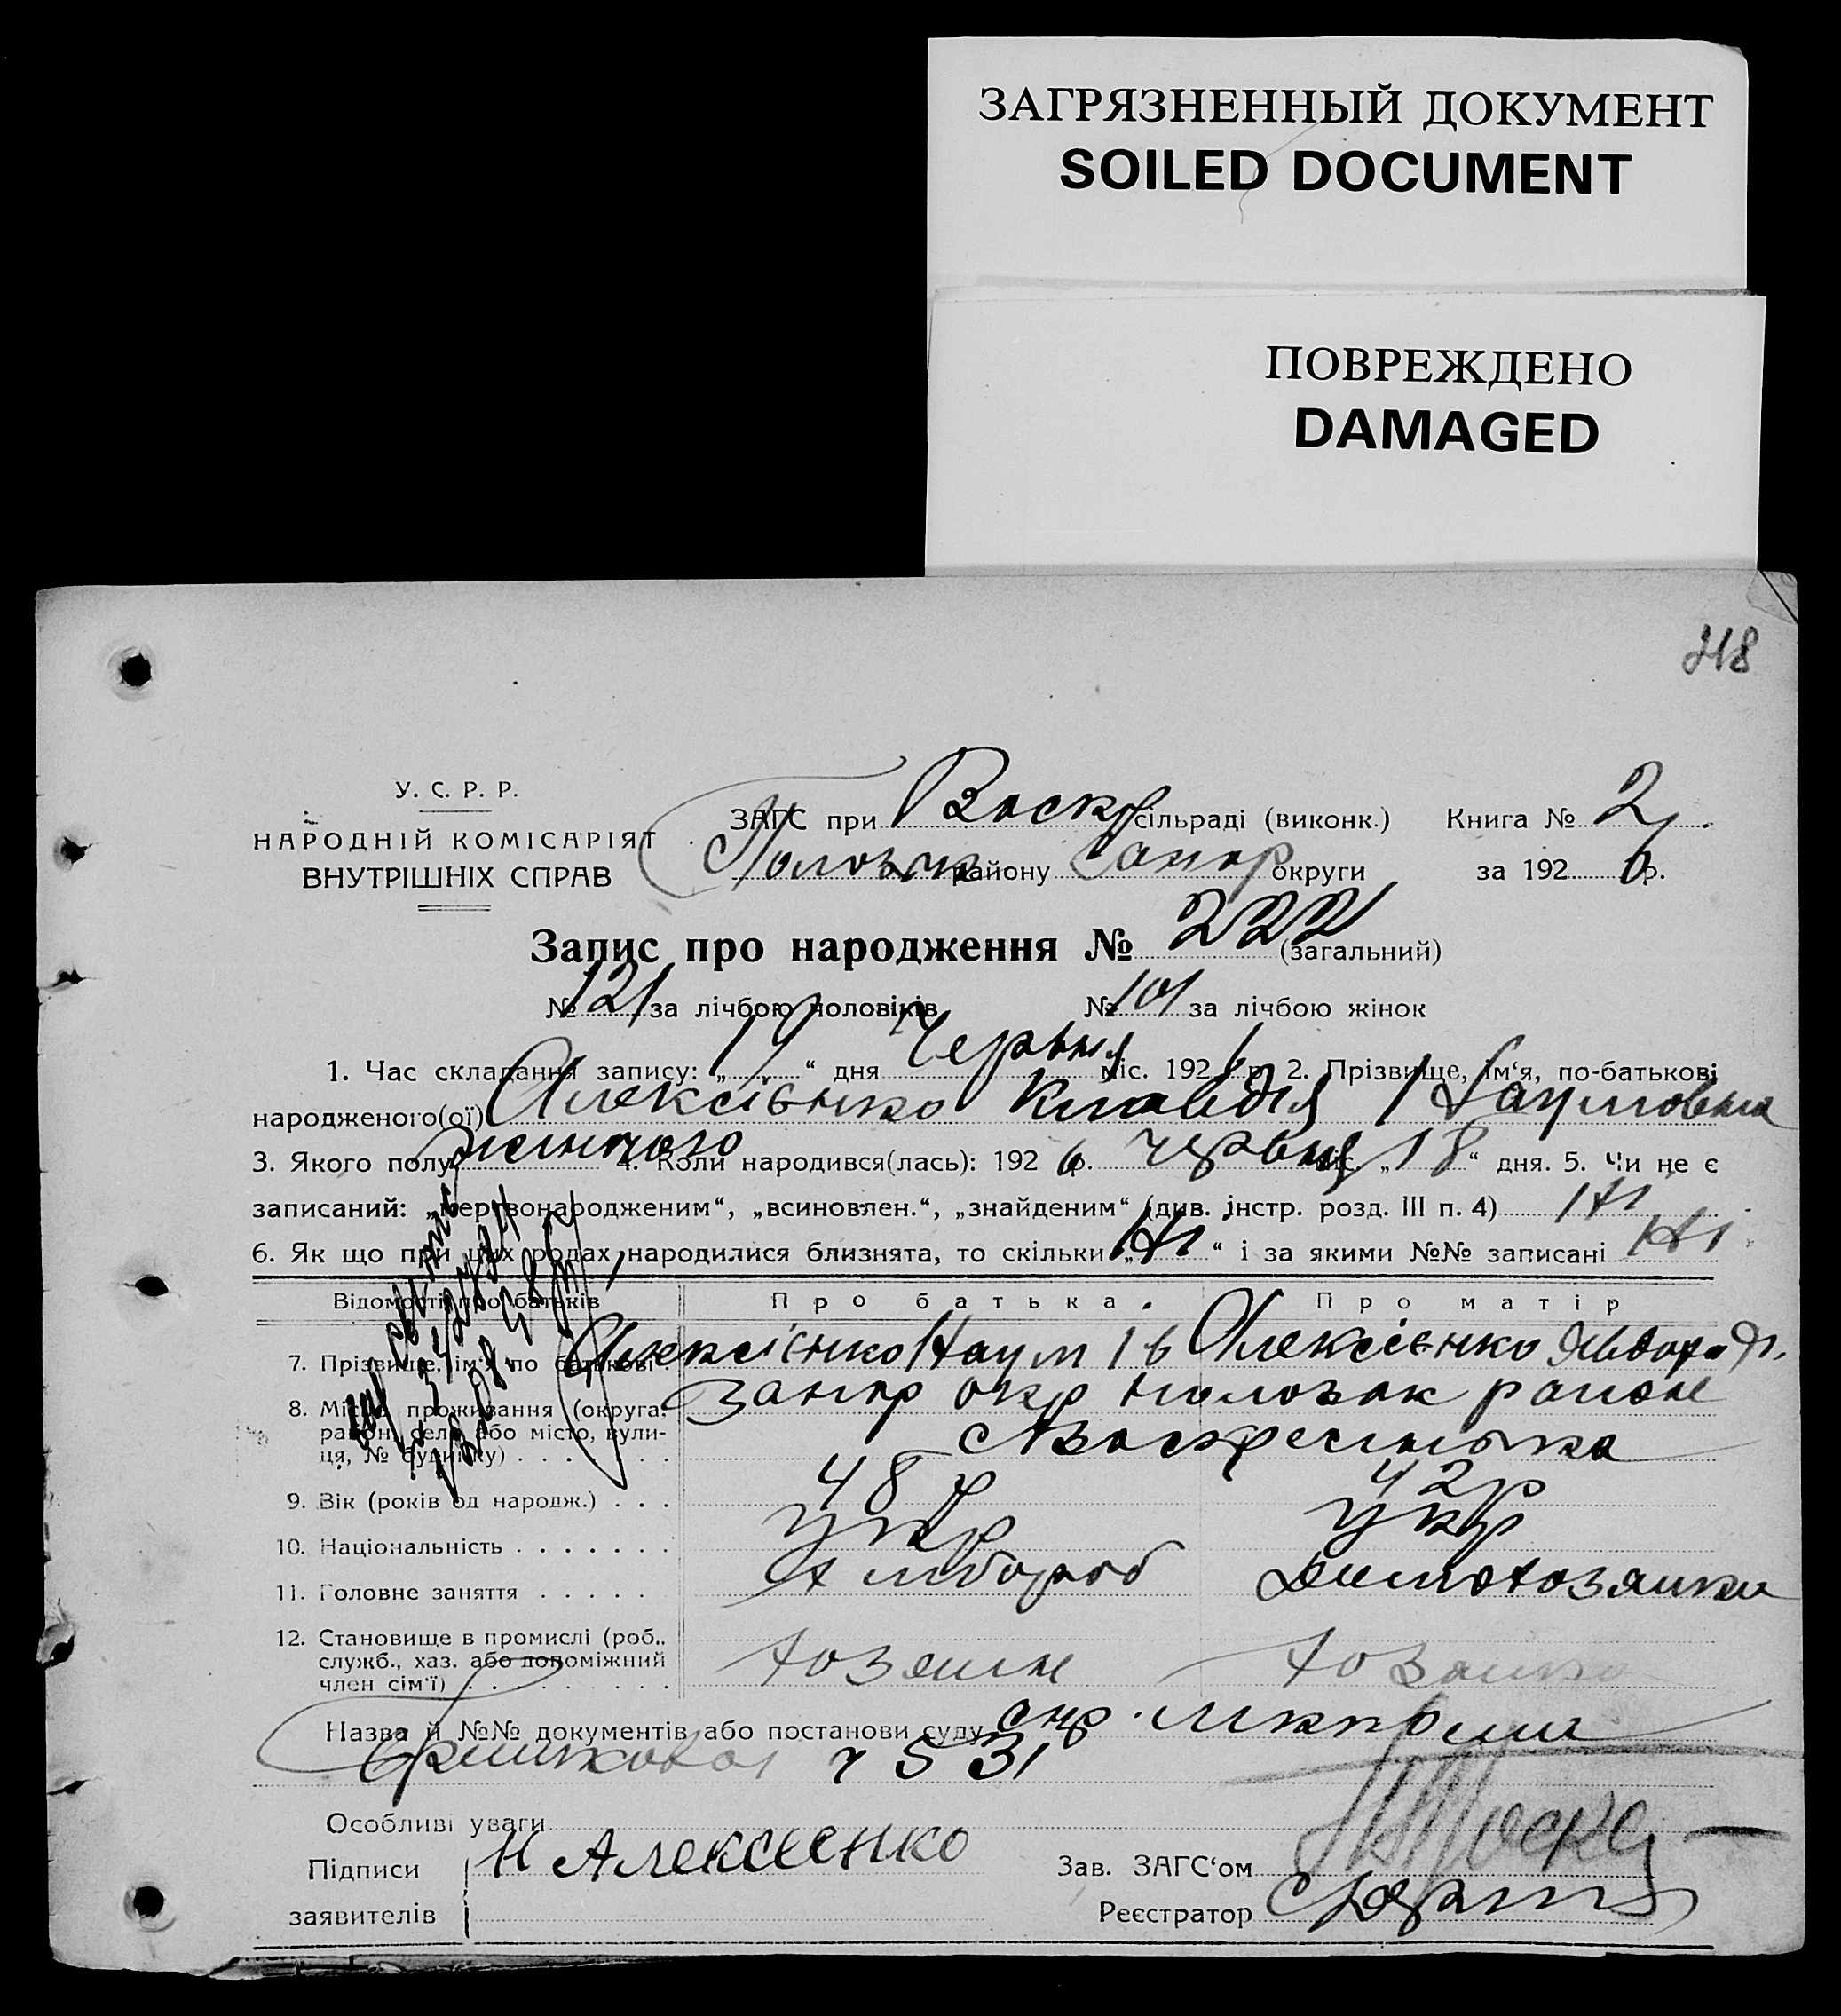 ЗАГРЯЗНЕННЫЙ ДОКУМЕНТ
SOILED DOCUMENT
ПОВРЕЖДЕНО
DAMAGED
218
У. С. Р. Р.
НАРОДНІЙ КОМІСАРІЯТ
ВНУТРІШНІХ СПРАВ
ЗАГС при Воскр сільраді (виконк.) Книга № 2
Пологськ району Запор округи за 1926 р.
Запис про народження № 222 (загальний)
№ 121 за лічбою чоловіків № 101 за лічбою жінок
1. Час складання запису: „19“ дня Червня міс. 1926 р. 2. Прізвище, ім‘я, по-батькові
народженого(ої) Алексієнко Клавдія Наумовна
3. Якого полу жіночого 4. Коли народився(лась): 1926 р. червня міс. „18“ дня. 5. Чи не є
записаний: „мертвонародженим“, „всиновлен.“, „знайденим“ (див. інстр. розд. III п. 4) Ні
6. Як що при цих родах народилися близнята, то скільки „Ні“ і за якими №№ записані Ні
Відомості про батьків Про батька. Про матір
7. Прізвище, ім‘я по батькові Алексієнко Наум Ів Алексієнко Явдоха
8. Місце проживання (округа, район, село або місто, вули-
ця, № будинку) Запор окр Пологськ район
с Воскресенька
9. Вік (років од народж.) 48 р 42 р
10. Національність укр укр
11. Головне заняття Хлібороб Домохозяйка
12. Становище в промислі (роб.,
служб., хаз. або допоміжний
член сім‘ї) хозяин хозяйка
Назва й №№ документів або постанови суду
ч 531
Особливі уваги
Підписи Н Алексеенко Зав. ЗАГС‘ом
заявителів Реєстратор